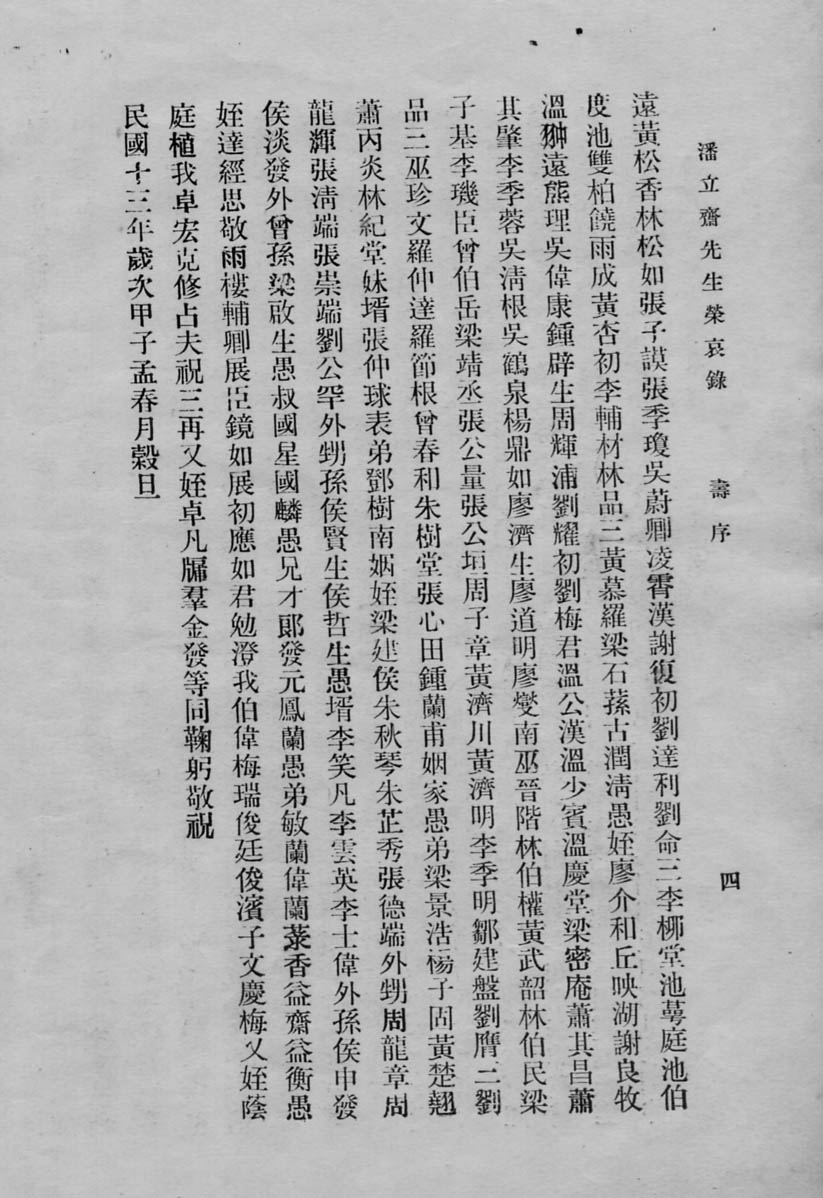 潘立齋先生榮哀錄 壽序 四
遠黃松香林松如張子謨張季瓊吳蔚卿凌霄漢謝復初劉達利劉命三李柳堂池萼庭池伯
度池雙柏饒雨成黃杏初李輔材林品三黃慕羅梁石蓀古潤淸愚姪廖介和丘映湖謝良牧
溫翀遠熊理吳偉康鍾辟生周輝浦劉耀初劉梅君溫公漢溫少賓溫慶堂梁密庵蕭其昌蕭
其肇李季蓉吳淸根吳鶴泉楊鼎如廖濟生廖道明廖燮南巫晉階林伯權黃武韶林伯民梁
子基李璣臣曾伯岳梁靖丞張公量張公垣周子章黃濟川黃濟明李季明鄒建盤劉膺二劉
品三巫珍文羅仲達羅節根曾春和朱樹堂張心田鍾蘭甫姻家愚弟梁景浩楊子固黃楚翹
蕭丙炎林紀堂妹壻張仲球表弟鄧樹南姻姪梁建侯朱秋琴朱芷秀張德端外甥周龍章周
龍輝張淸端張崇端劉公罕外甥孫侯賢生侯哲生愚壻李笑凡李雲英李士偉外孫侯中發
侯淡發外曾孫梁啟生愚叔國星國麟愚兄才郞發元鳳蘭愚弟敏蘭偉蘭菉香益齋益衡愚
姪達經思敬雨樓輔卿展臣鏡如展初應如君勉澄我伯偉梅瑞俊廷俊濱子文慶梅又姪蔭
庭植我卓宏克修占夫祝三再又姪卓凡牖羣金發等同鞠躬敬祝
民國十三年歲次甲子孟春月穀旦